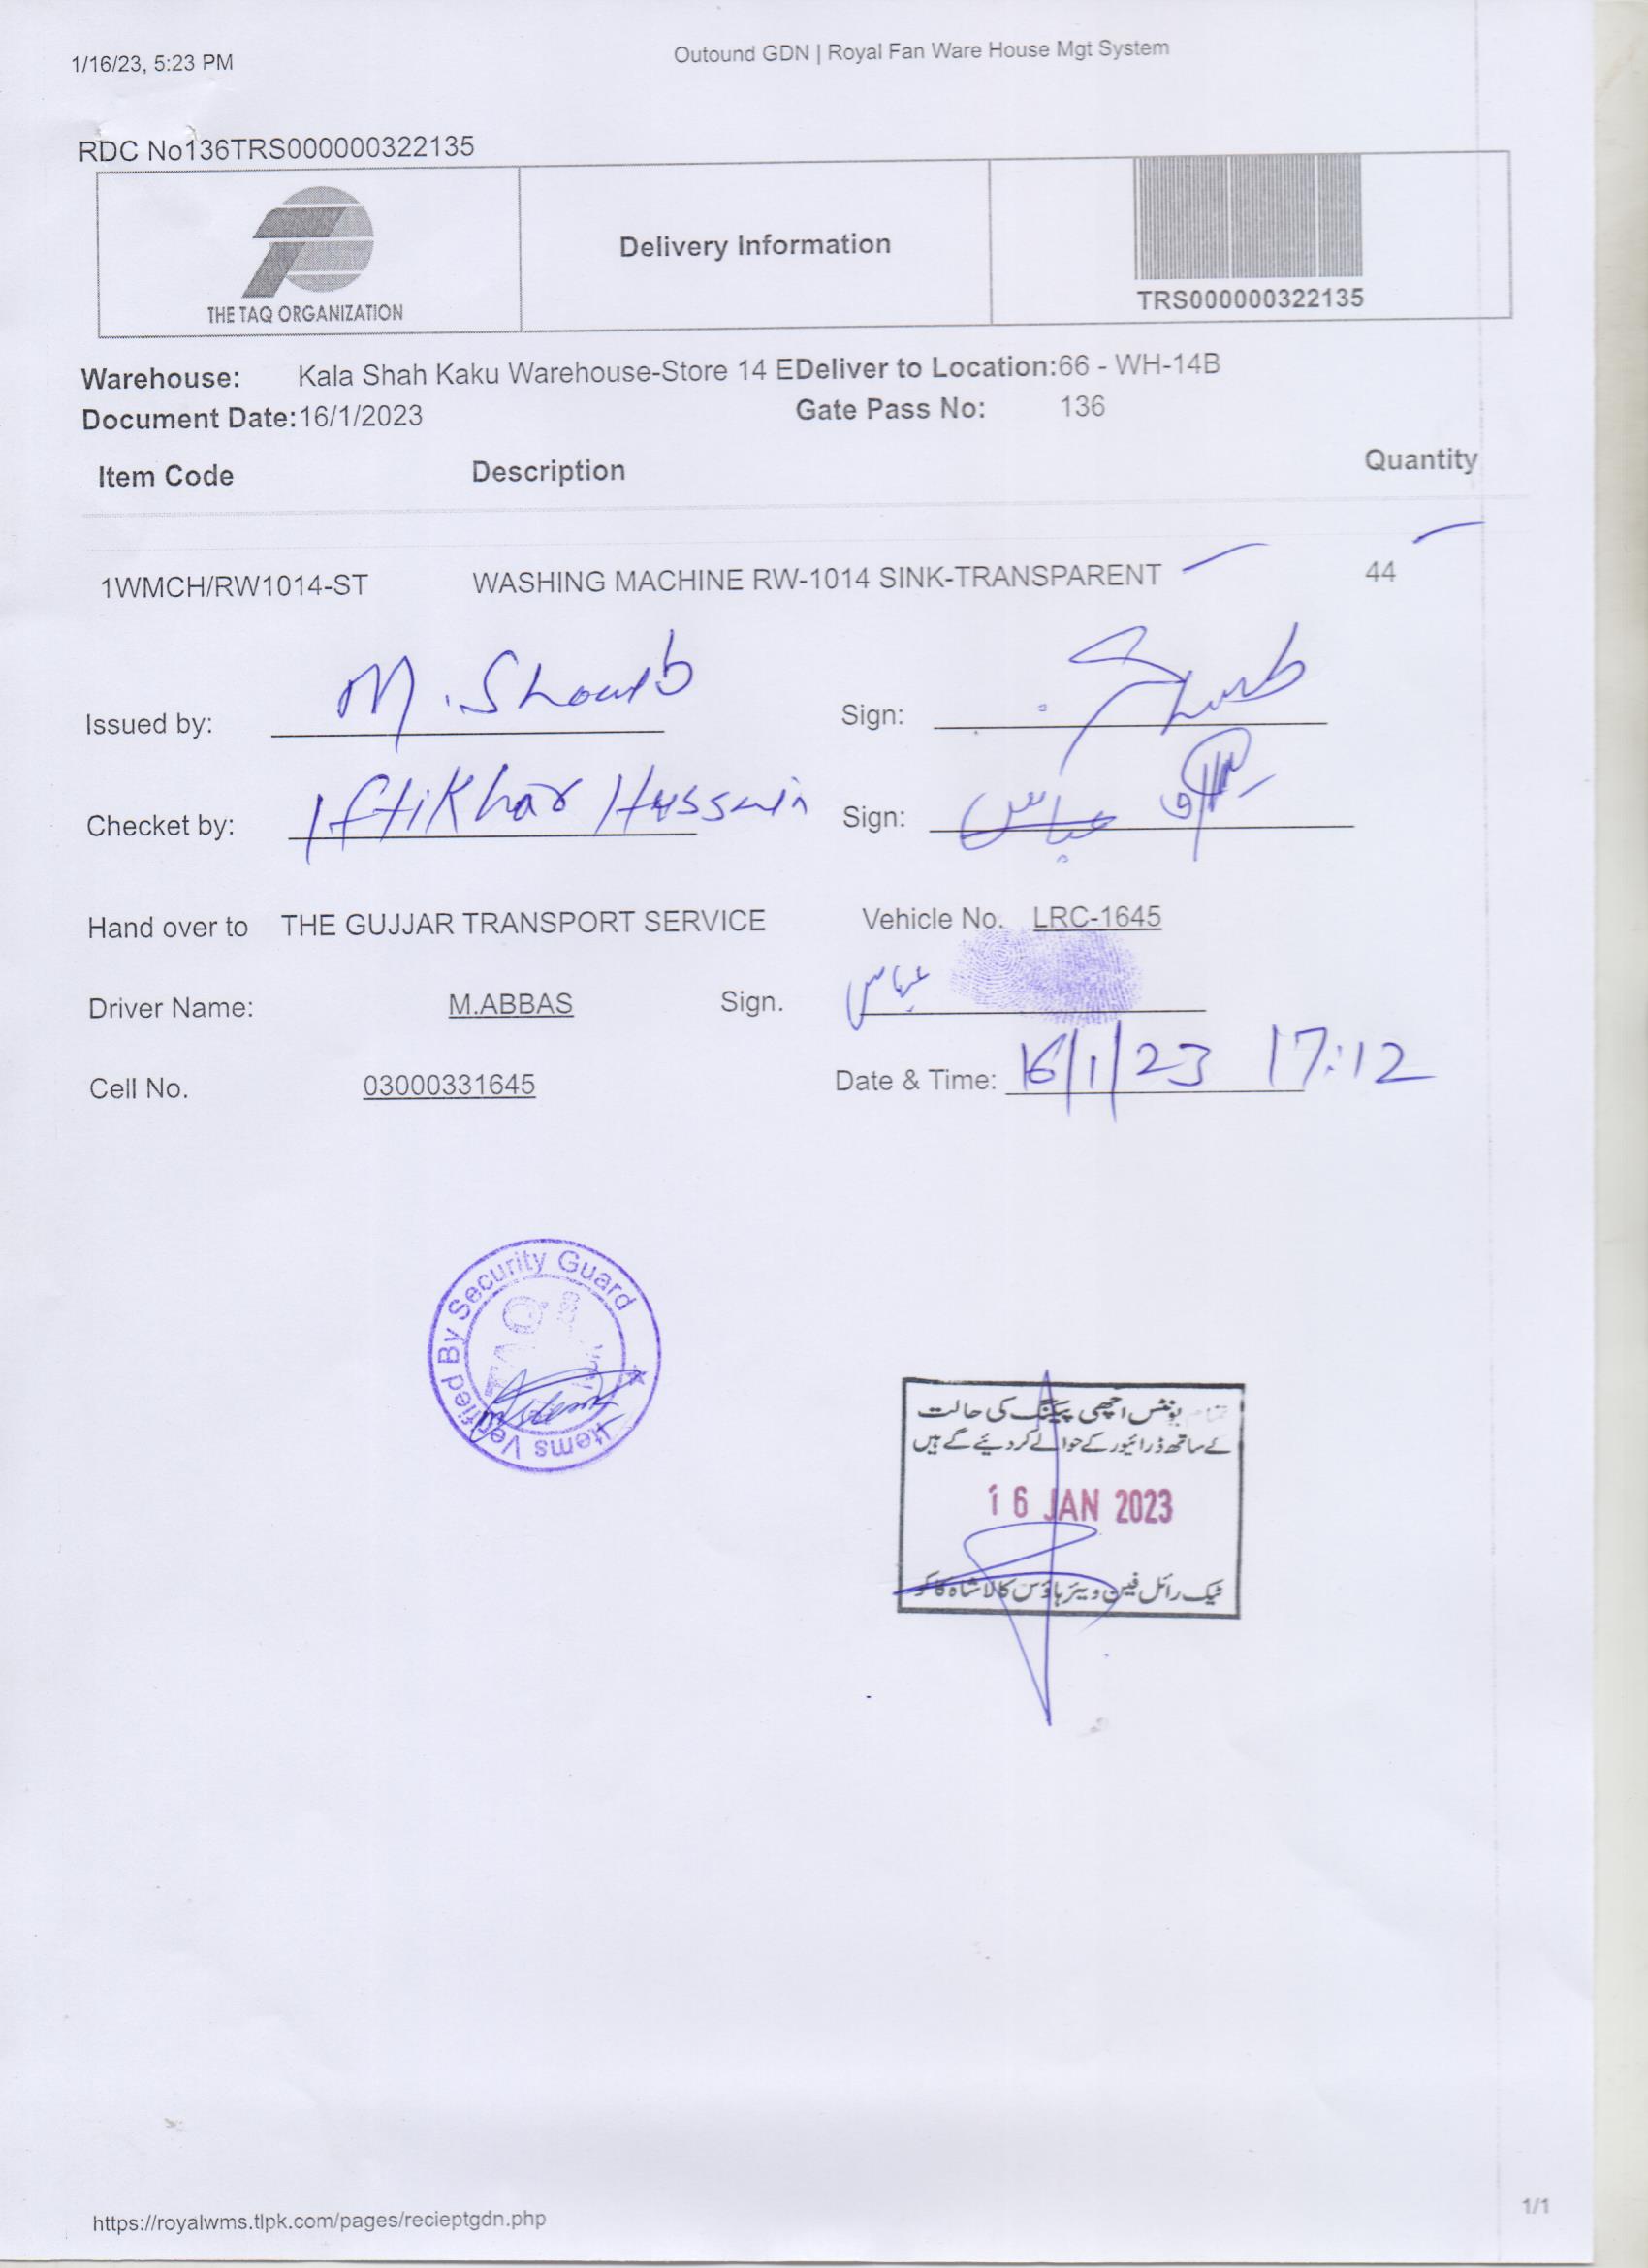 1/16/23, 5:23 PM
Outound GDN | Royal Fan Ware House Mgt System
RDC No136TRS000000322135
THE TAQ ORGANIZATION
Delivery Information
TRS000000322135
Warehouse: Kala Shah Kaku Warehouse-Store 14 EDeliver to Location:66 - WH-14B
Document Date:16/1/2023 Gate Pass No: 136
Item Code Description Quantity
1WMCH/RW1014-ST WASHING MACHINE RW-1014 SINK-TRANSPARENT 44
Issued by: M. Shoaib Sign:
Checket by: Iftikhar Hussain Sign: عباس
Hand over to THE GUJJAR TRANSPORT SERVICE Vehicle No. LRC-1645
Driver Name: M.ABBAS Sign. عباس
Cell No. 03000331645 Date & Time: 16/1/23 17:12
Items Verified By Security Guard
TAQ
تمام یونٹس اچھی پیکنگ کی حالت
کے ساتھ ڈرائیور کے حوالے کر دیئے گے ہیں
16 JAN 2023
ٹیک رائل فین ویئر ہاؤس کالا شاہ کاکو
https://royalwms.tlpk.com/pages/recieptgdn.php
1/1